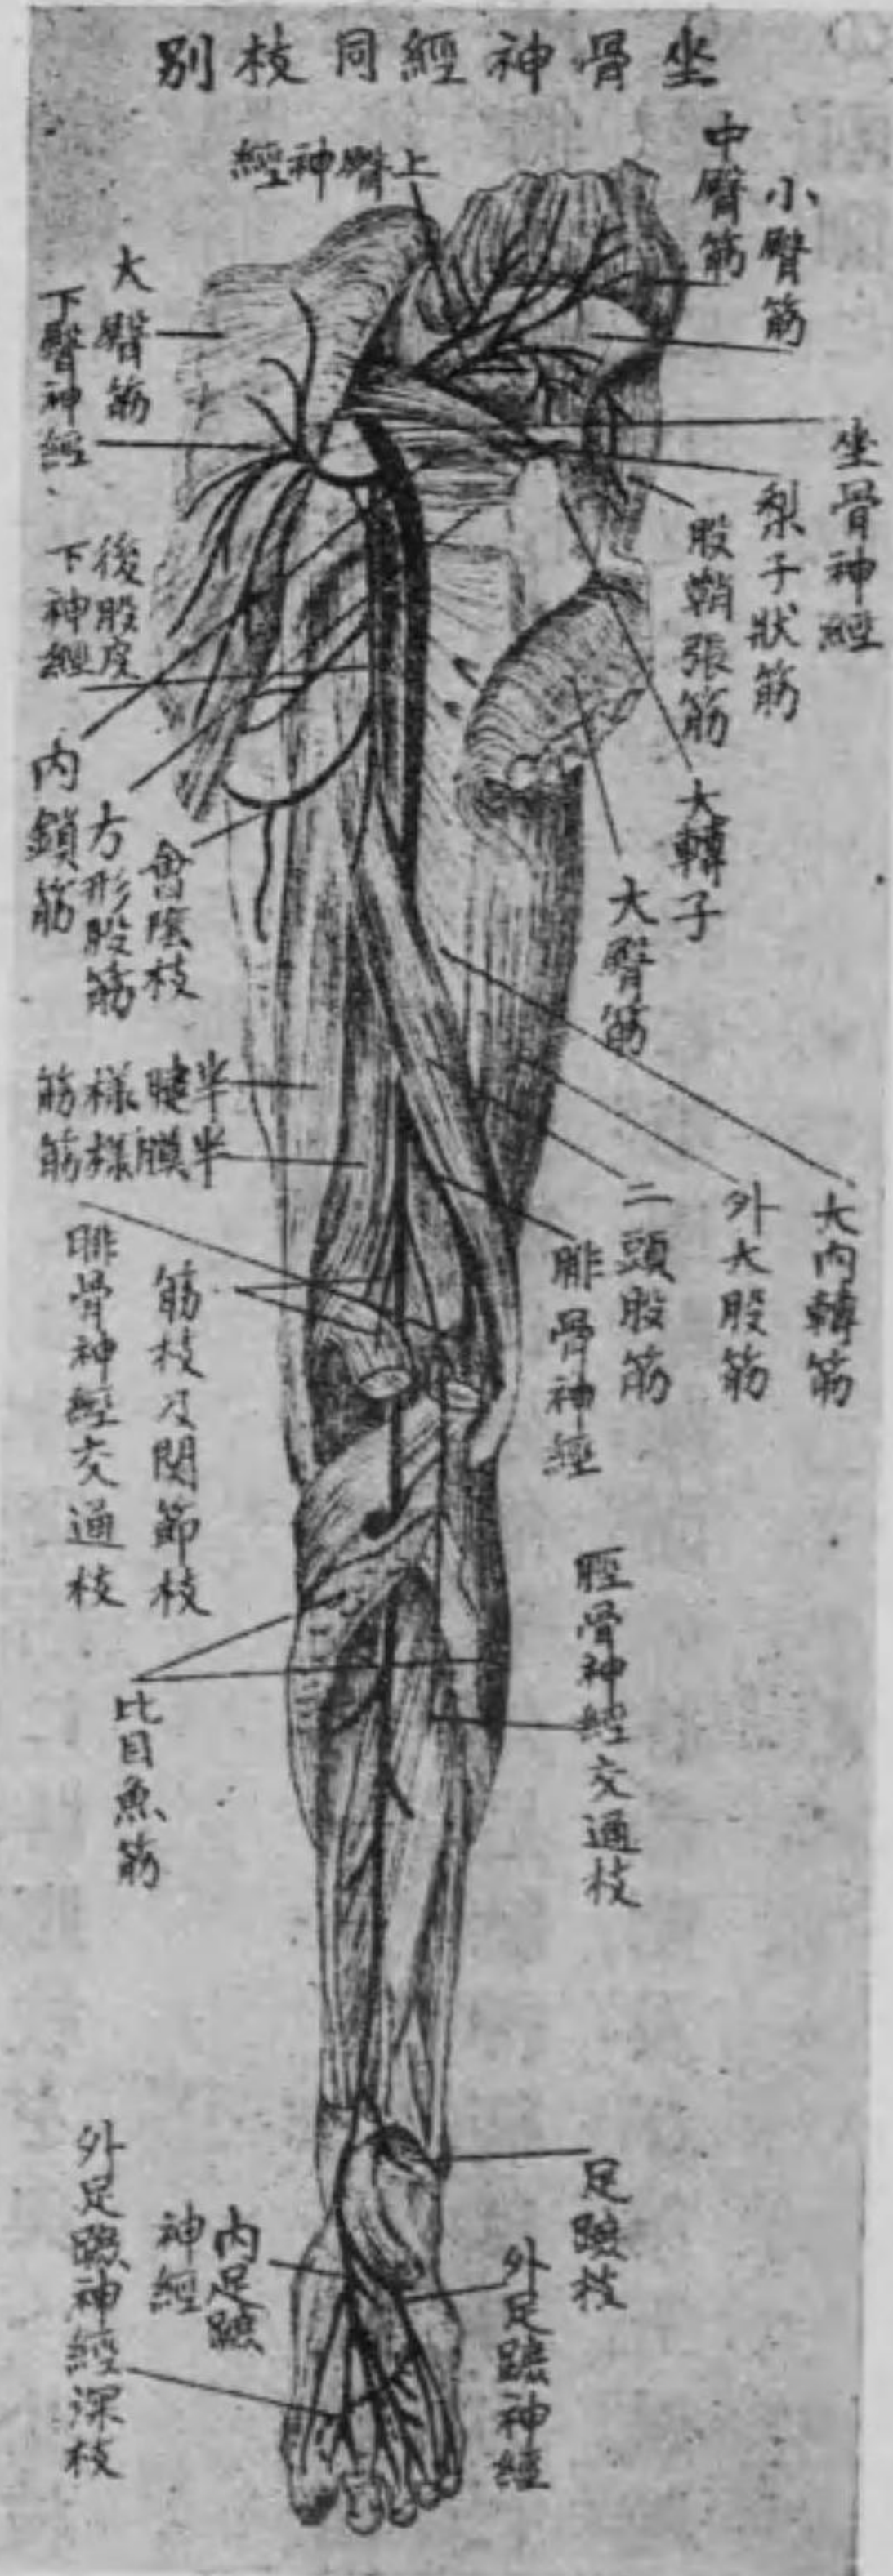 坐骨神經同枝別
上臀神經
中臀筋
小臀筋
大臀筋
下臀神經
坐骨神經
梨子狀筋
股鞘張筋
大轉子
大臀筋
後股皮
下神經
內鎖筋
方形股筋
會陰枝
半腱樣筋
半膜樣筋
大內轉筋
外大股筋
二頭股筋
腓骨神經
筋枝及関節枝
腓骨神經交通枝
脛骨神經交通枝
比目魚筋
足蹠枝
外足蹠神經
內足蹠
神經
外足蹠神經深枝